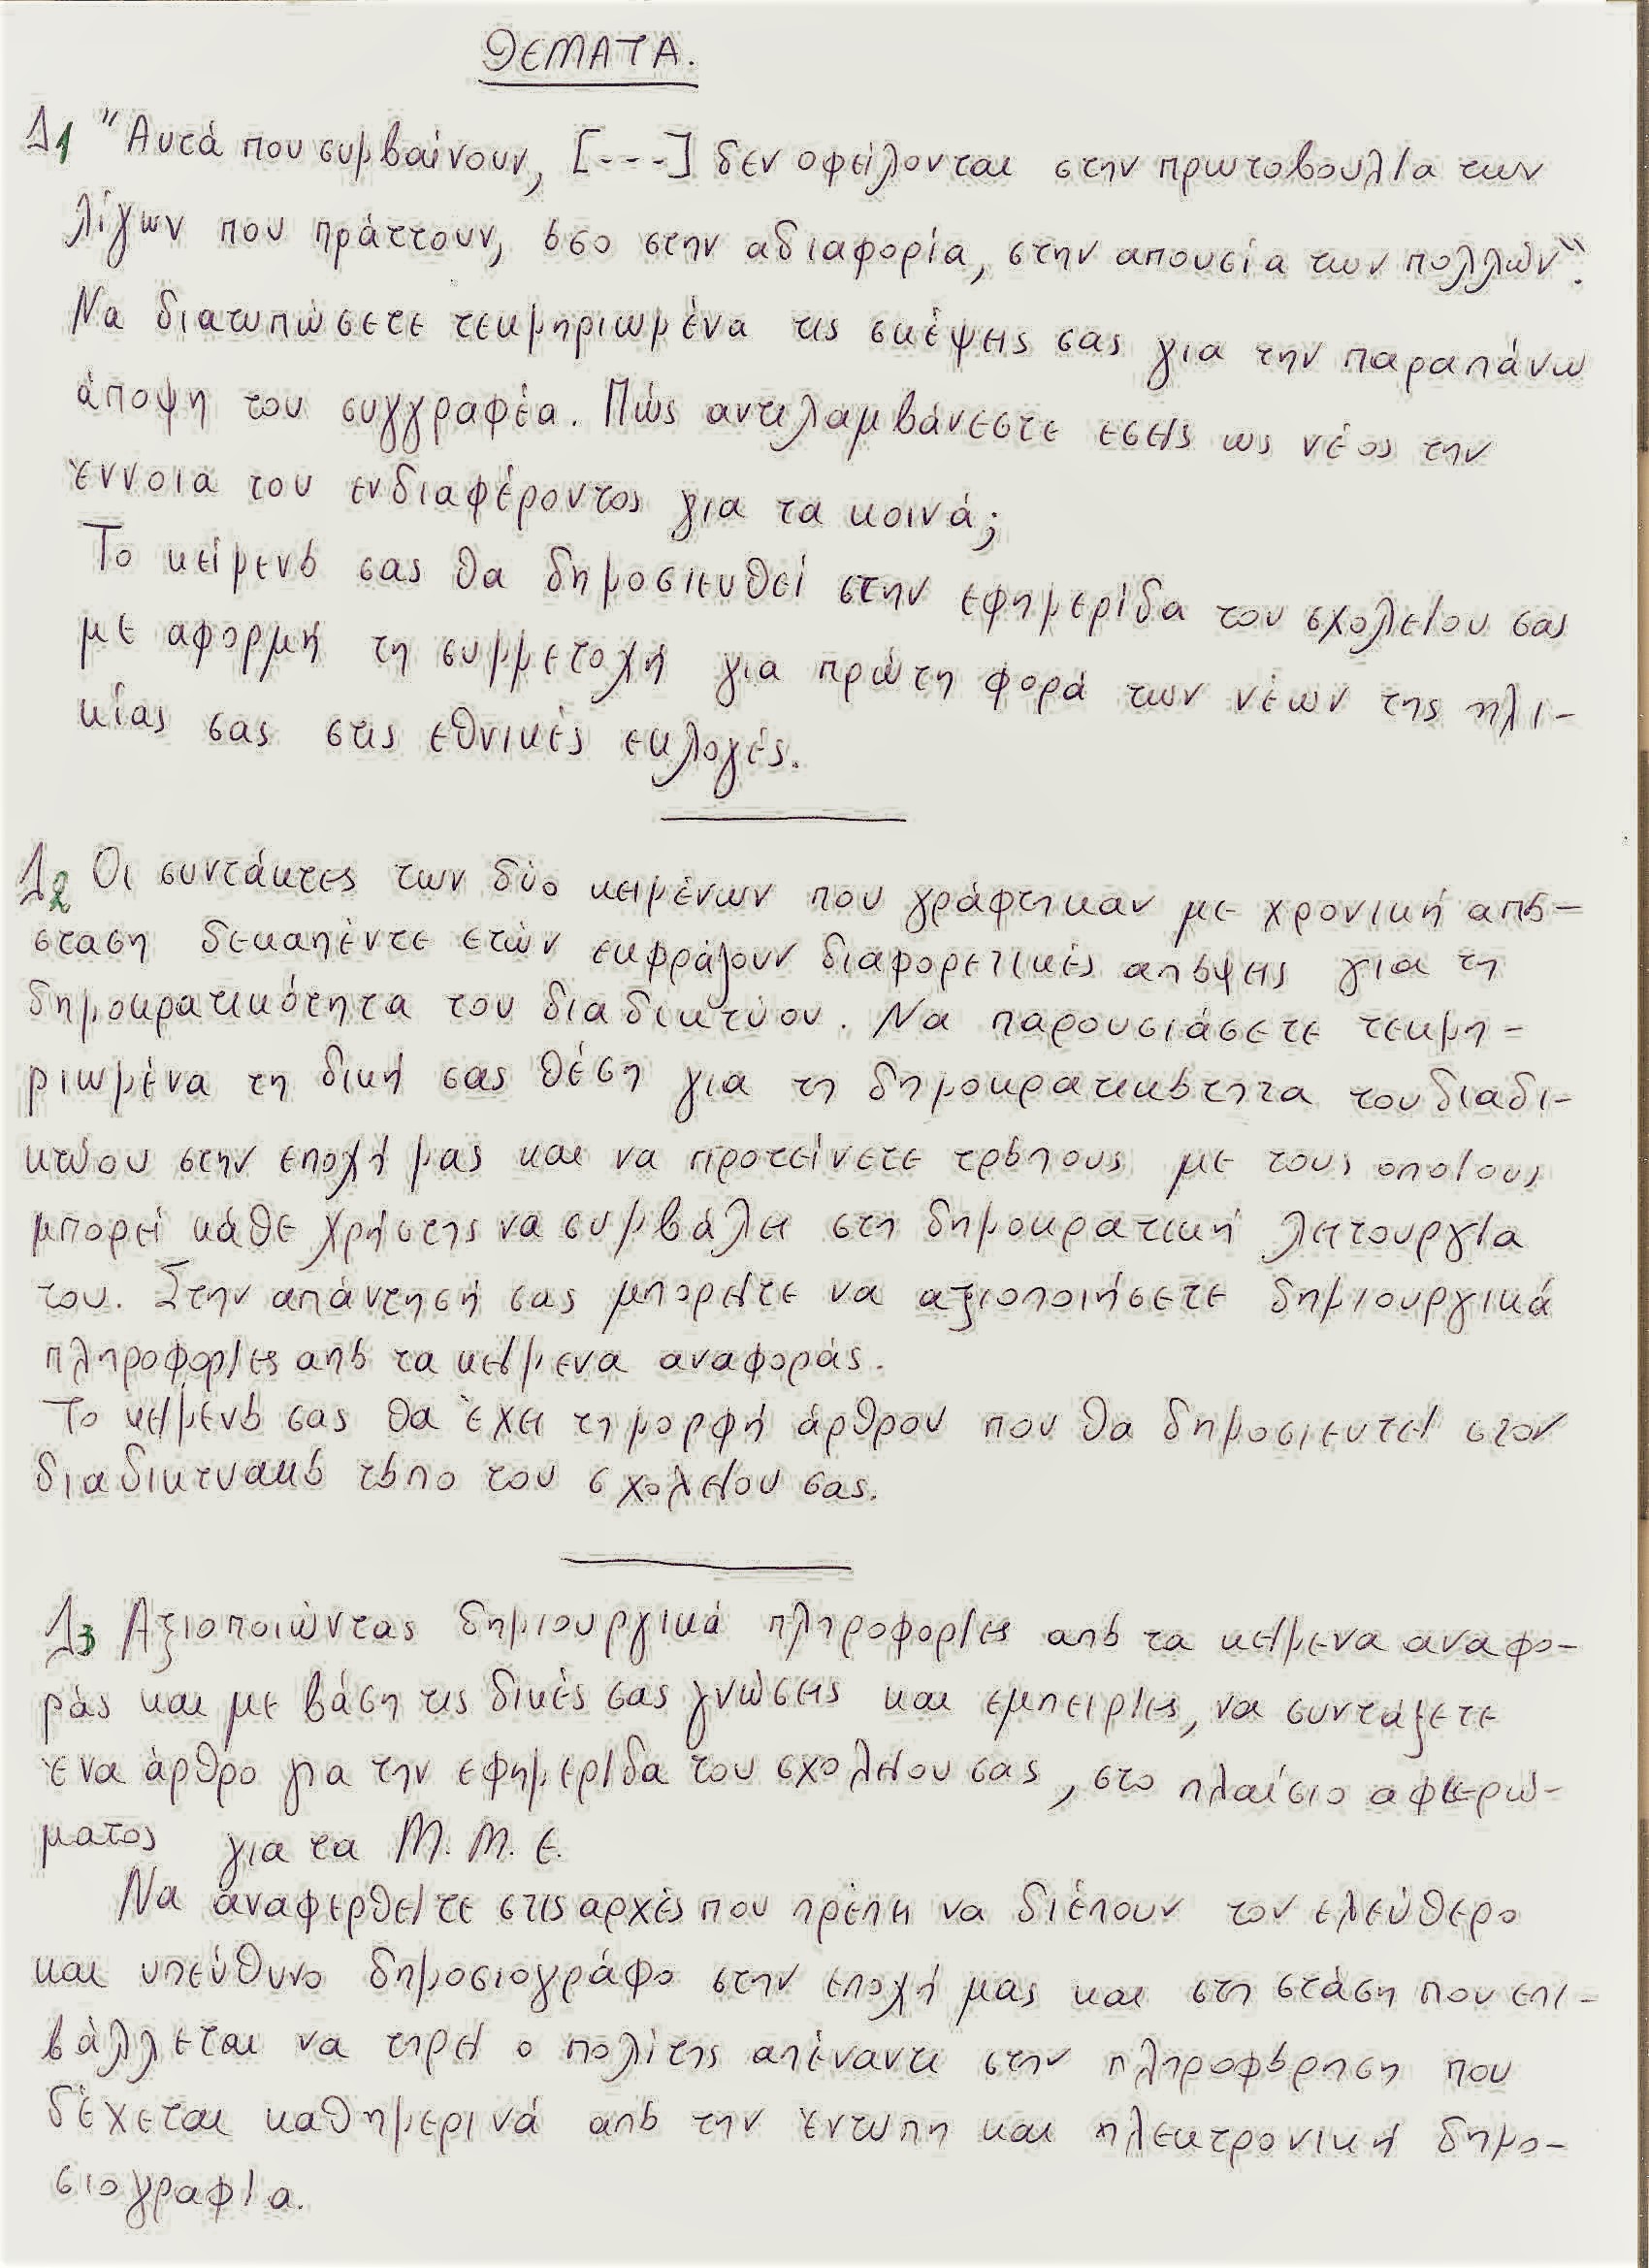 ΘΕΜΑΤΑ.
Δ1 "Αυτά που συμβαίνουν, [---] δεν οφείλονται στην πρωτοβουλία των
λίγων που πράττουν, όσο στην αδιαφορία, στην απουσία των πολλών".
Να διατυπώσετε τεκμηριωμένα τις σκέψεις σας για την παραπάνω
άποψη του συγγραφέα. Πώς αντιλαμβάνεστε εσείς ως νέος την
έννοια του ενδιαφέροντος για τα κοινά;
Το κείμενό σας θα δημοσιευθεί στην εφημερίδα του σχολείου σας
με αφορμή τη συμμετοχή για πρώτη φορά των νέων της ηλι-
κίας σας στις εθνικές εκλογές.
Δ2 Οι συντάκτες των δύο κειμένων που γράφτηκαν με χρονική από-
σταση δεκαπέντε ετών εκφράζουν διαφορετικές απόψεις για τη
δημοκρατικότητα του διαδικτύου. Να παρουσιάσετε τεκμη-
ριωμένα τη δική σας θέση για τη δημοκρατικότητα του διαδι-
κτύου στην εποχή μας και να προτείνετε τρόπους με τους οποίους
μπορεί κάθε χρήστης να συμβάλει στη δημοκρατική λειτουργία
του. Στην απάντησή σας μπορείτε να αξιοποιήσετε δημιουργικά
πληροφορίες από τα κείμενα αναφοράς.
Το κείμενό σας θα έχει τη μορφή άρθρου που θα δημοσιευτεί στον
διαδικτυακό τόπο του σχολείου σας.
Δ3 Αξιοποιώντας δημιουργικά πληροφορίες από τα κείμενα αναφο-
ράς και με βάση τις δικές σας γνώσεις και εμπειρίες, να συντάξετε
ένα άρθρο για την εφημερίδα του σχολείου σας, στο πλαίσιο αφιερώ-
ματος για τα Μ.Μ.Ε.
Να αναφερθείτε στις αρχές που πρέπει να διέπουν τον ελεύθερο
και υπεύθυνο δημοσιογράφο στην εποχή μας και στη στάση που επι-
βάλλεται να τηρεί ο πολίτης απέναντι στην πληροφόρηση που
δέχεται καθημερινά από την έντυπη και ηλεκτρονική δημο-
σιογραφία.